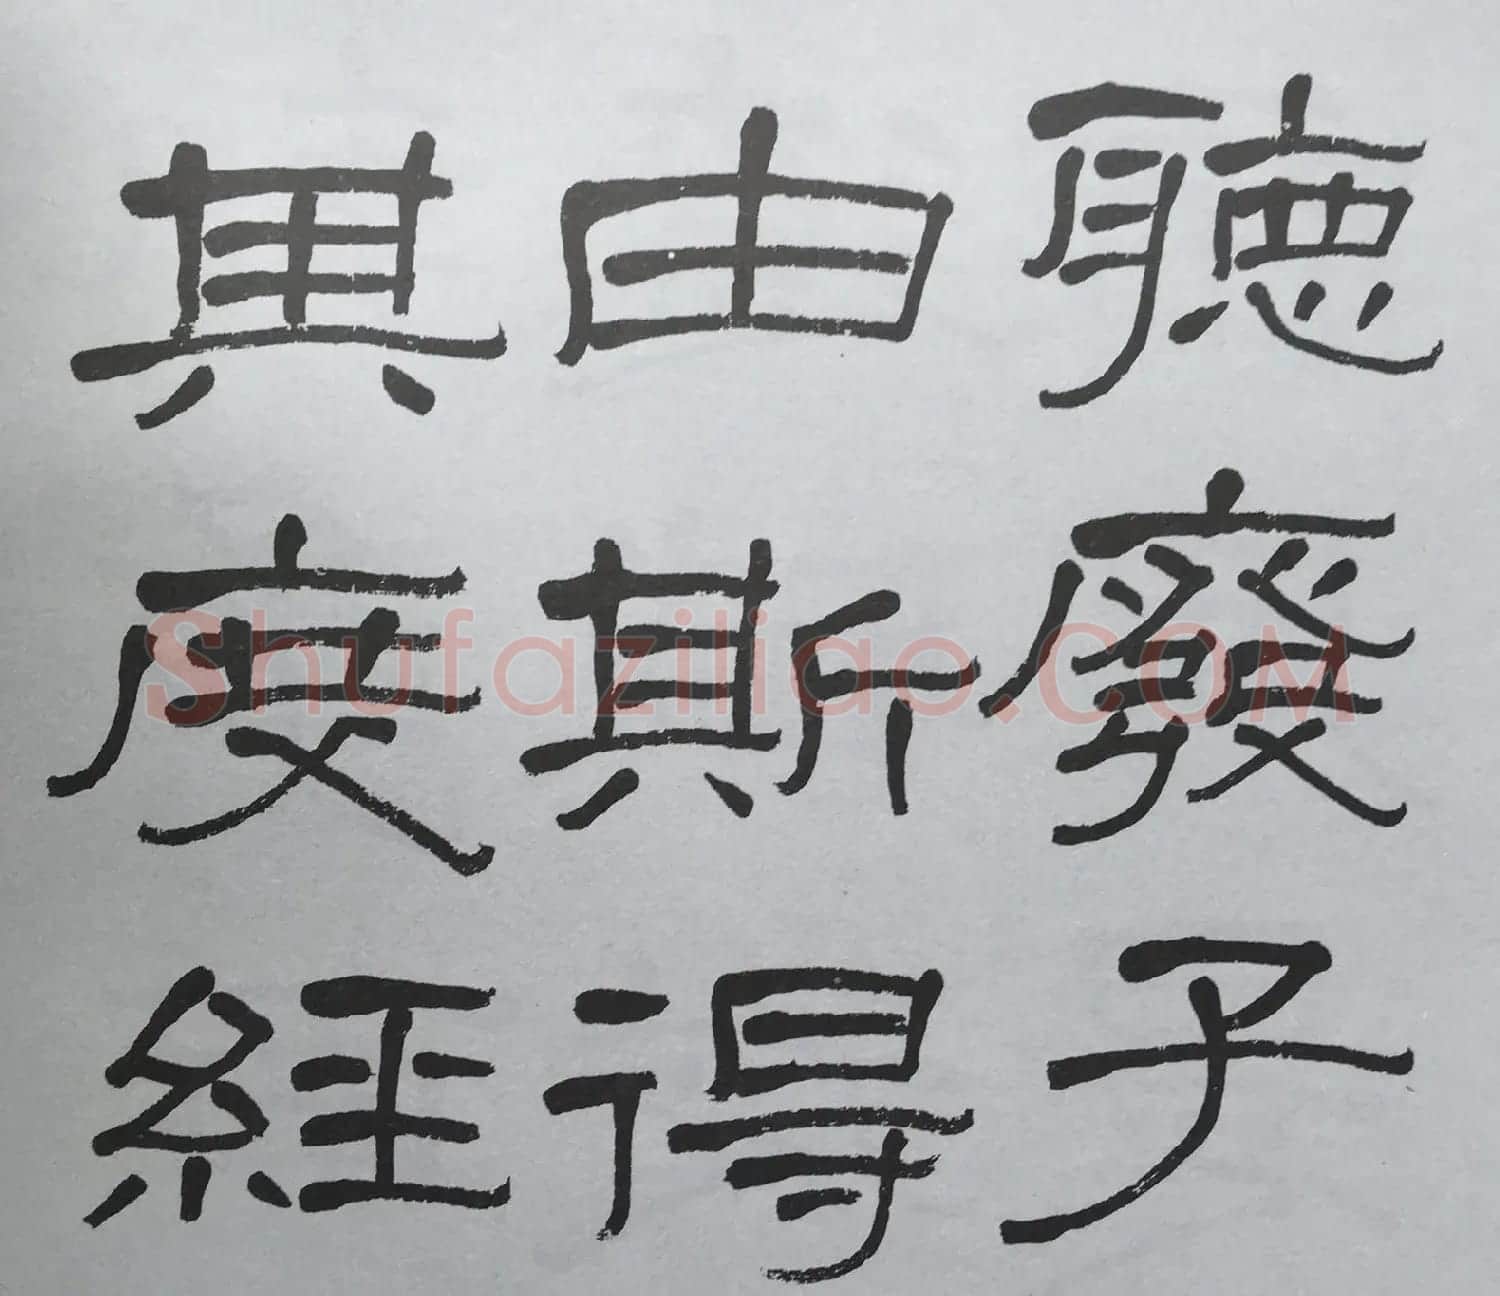 聽廢子
由斯得
其度經
Shufaziliao.COM